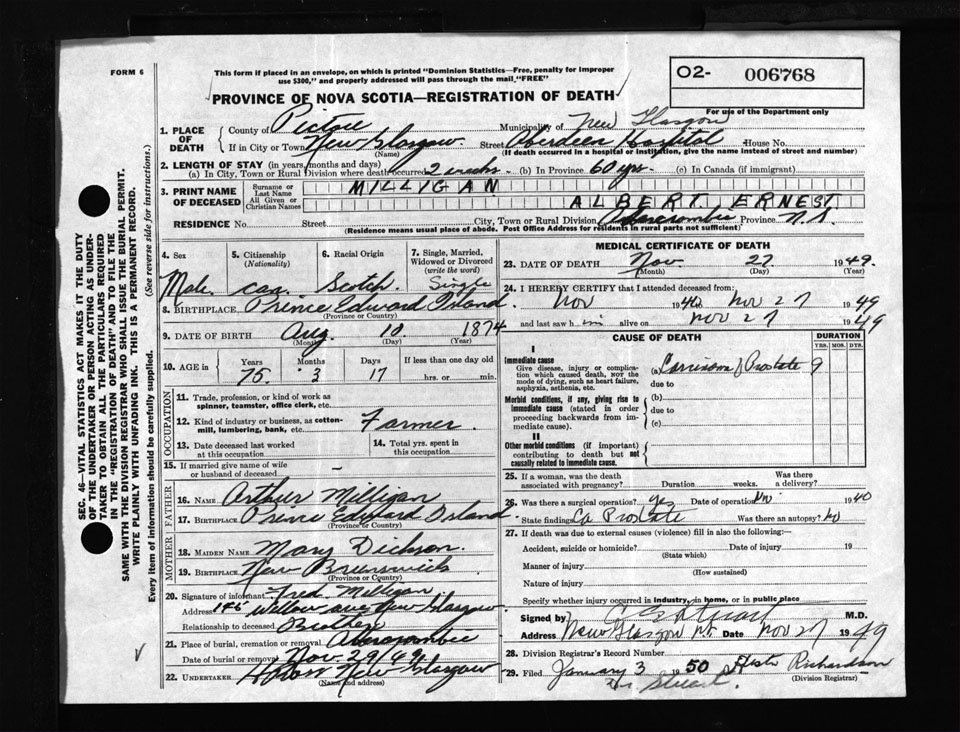 FORM 6
This form if placed in an envelope, on which is printed "Dominion Statistics—Free, penalty for improper
use $300," and properly addressed will pass through the mail "FREE"
O2- 006768
For use of the Department only
PROVINCE OF NOVA SCOTIA—REGISTRATION OF DEATH
1. PLACE OF DEATH
County of Pictou Municipality of New Glasgow
If in City or Town New Glasgow. Street Aberdeen Hospital House No.
(Name) (If death occurred in a hospital or institution, give the name instead of street and number)
2. LENGTH OF STAY (in years, months and days)
(a) In City, Town or Rural Division where death occurred 2 weeks. (b) In Province 60 yrs. (c) In Canada (if immigrant)
3. PRINT NAME OF DECEASED
Surname or Last Name MILLIGAN
All Given or Christian Names ALBERT ERNEST
RESIDENCE No. Street City, Town or Rural Division Abercrombie Province N.S.
(Residence means usual place of abode. Post Office Address for residents in rural parts not sufficient)
4. Sex
Male.
5. Citizenship
(Nationality)
Can.
6. Racial Origin
Scotch.
7. Single, Married, Widowed or Divorced
(write the word)
Single
8. BIRTHPLACE Prince Edward Island.
(Province or Country)
9. DATE OF BIRTH Aug. 10 1874
(Month) (Day) (Year)
10. AGE in Years Months Days If less than one day old
75. 3 17 hrs. or min.
OCCUPATION
11. Trade, profession, or kind of work as
spinner, teamster, office clerk, etc.
12. Kind of industry or business, as cotton-
mill, lumbering, bank, etc. Farmer.
13. Date deceased last worked
at this occupation
14. Total yrs. spent in
this occupation
15. If married give name of wife
or husband of deceased –
FATHER
16. NAME Arthur Milligan
17. BIRTHPLACE Prince Edward Island
(Province or Country)
MOTHER
18. MAIDEN NAME Mary Dickson.
19. BIRTHPLACE New Brunswick
(Province or Country)
20. Signature of informant Fred Milligan
Address 145 Willow ave New Glasgow
Relationship to deceased Brother
21. Place of burial, cremation or removal Abercrombie
Date of burial or removal Nov 29/49
22. UNDERTAKER New Glasgow
(Name and address)
MEDICAL CERTIFICATE OF DEATH
23. DATE OF DEATH Nov 27 1949.
(Month) (Day) (Year)
24. I HEREBY CERTIFY that I attended deceased from:
Nov 1940 to Nov 27 1949
and last saw him alive on Nov 27 1949
CAUSE OF DEATH
DURATION
YRS. MOS. DYS.
I
Immediate cause
Give disease, injury or complica-
tion which caused death, NOT the
mode of dying, such as heart failure,
asphyxia, asthenia, etc.
(a) Carcinoma of Prostate 9
due to
Morbid conditions, if any, giving rise to
immediate cause (stated in order
proceeding backwards from im-
mediate cause).
(b)
due to
(c)
II
Other morbid conditions (if important)
contributing to death but not
causally related to immediate cause.
25. If a woman, was the death
associated with pregnancy? Duration weeks. Was there
a delivery?
26. Was there a surgical operation? yes Date of operation Nov 1940
State findings Ca Prostate Was there an autopsy? No
27. If death was due to external causes (violence) fill in also the following:—
Accident, suicide or homicide? Date of injury 19
(State which)
Manner of injury
(How sustained)
Nature of injury
Specify whether injury occurred in industry, in home, or in public place
Signed by M.D.
Address New Glasgow NS Date Nov 27 1949
28. Division Registrar's Record Number
29. Filed January 3 1950 Richardson
(Division Registrar)
SEC. 46—VITAL STATISTICS ACT MAKES IT THE DUTY
OF THE UNDERTAKER OR PERSON ACTING AS UNDER-
TAKER TO OBTAIN ALL THE PARTICULARS REQUIRED
IN THE "REGISTRATION OF DEATH" AND TO FILE THE
SAME WITH THE DIVISION REGISTRAR WHO SHALL ISSUE THE BURIAL PERMIT.
WRITE PLAINLY WITH UNFADING INK. THIS IS A PERMANENT RECORD.
Every item of information should be carefully supplied. (See reverse side for instructions.)